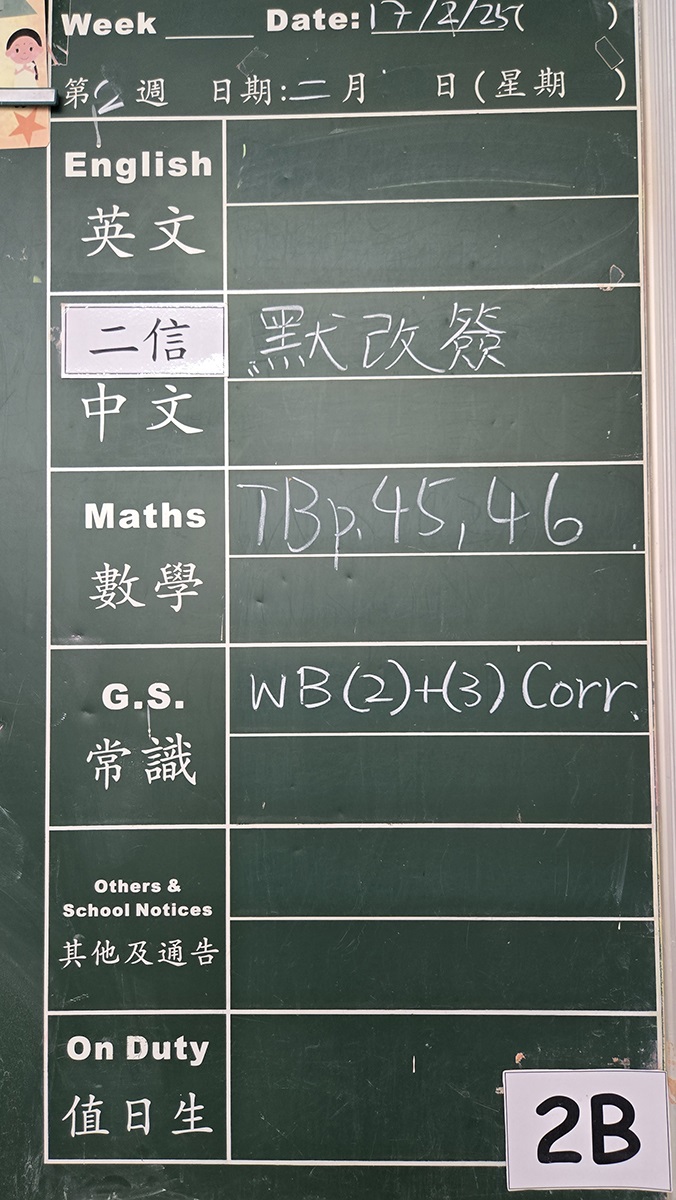 Week ______ Date: 17/2/25( )
第2週 日期:二月 日(星期 )
English
英文
二信 默改簽
中文
Maths TBp.45,46
數學
G.S. WB(2)+(3) Corr
常識
Others &
School Notices
其他及通告
On Duty
值日生
2B